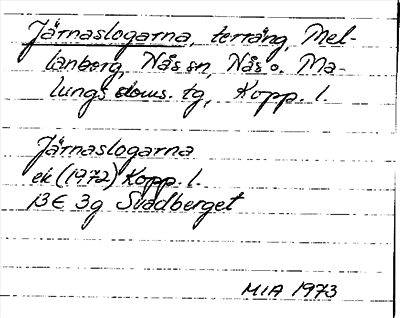 Järnaslogarna, terräng, Mel-
lanborg, Nås sn, Nås o. Ma-
lungs doms. tg, Kopp. l.
Järnaslogarna
ek (1972) Kopp. l.
13E 3g Svadberget
MIA 1973